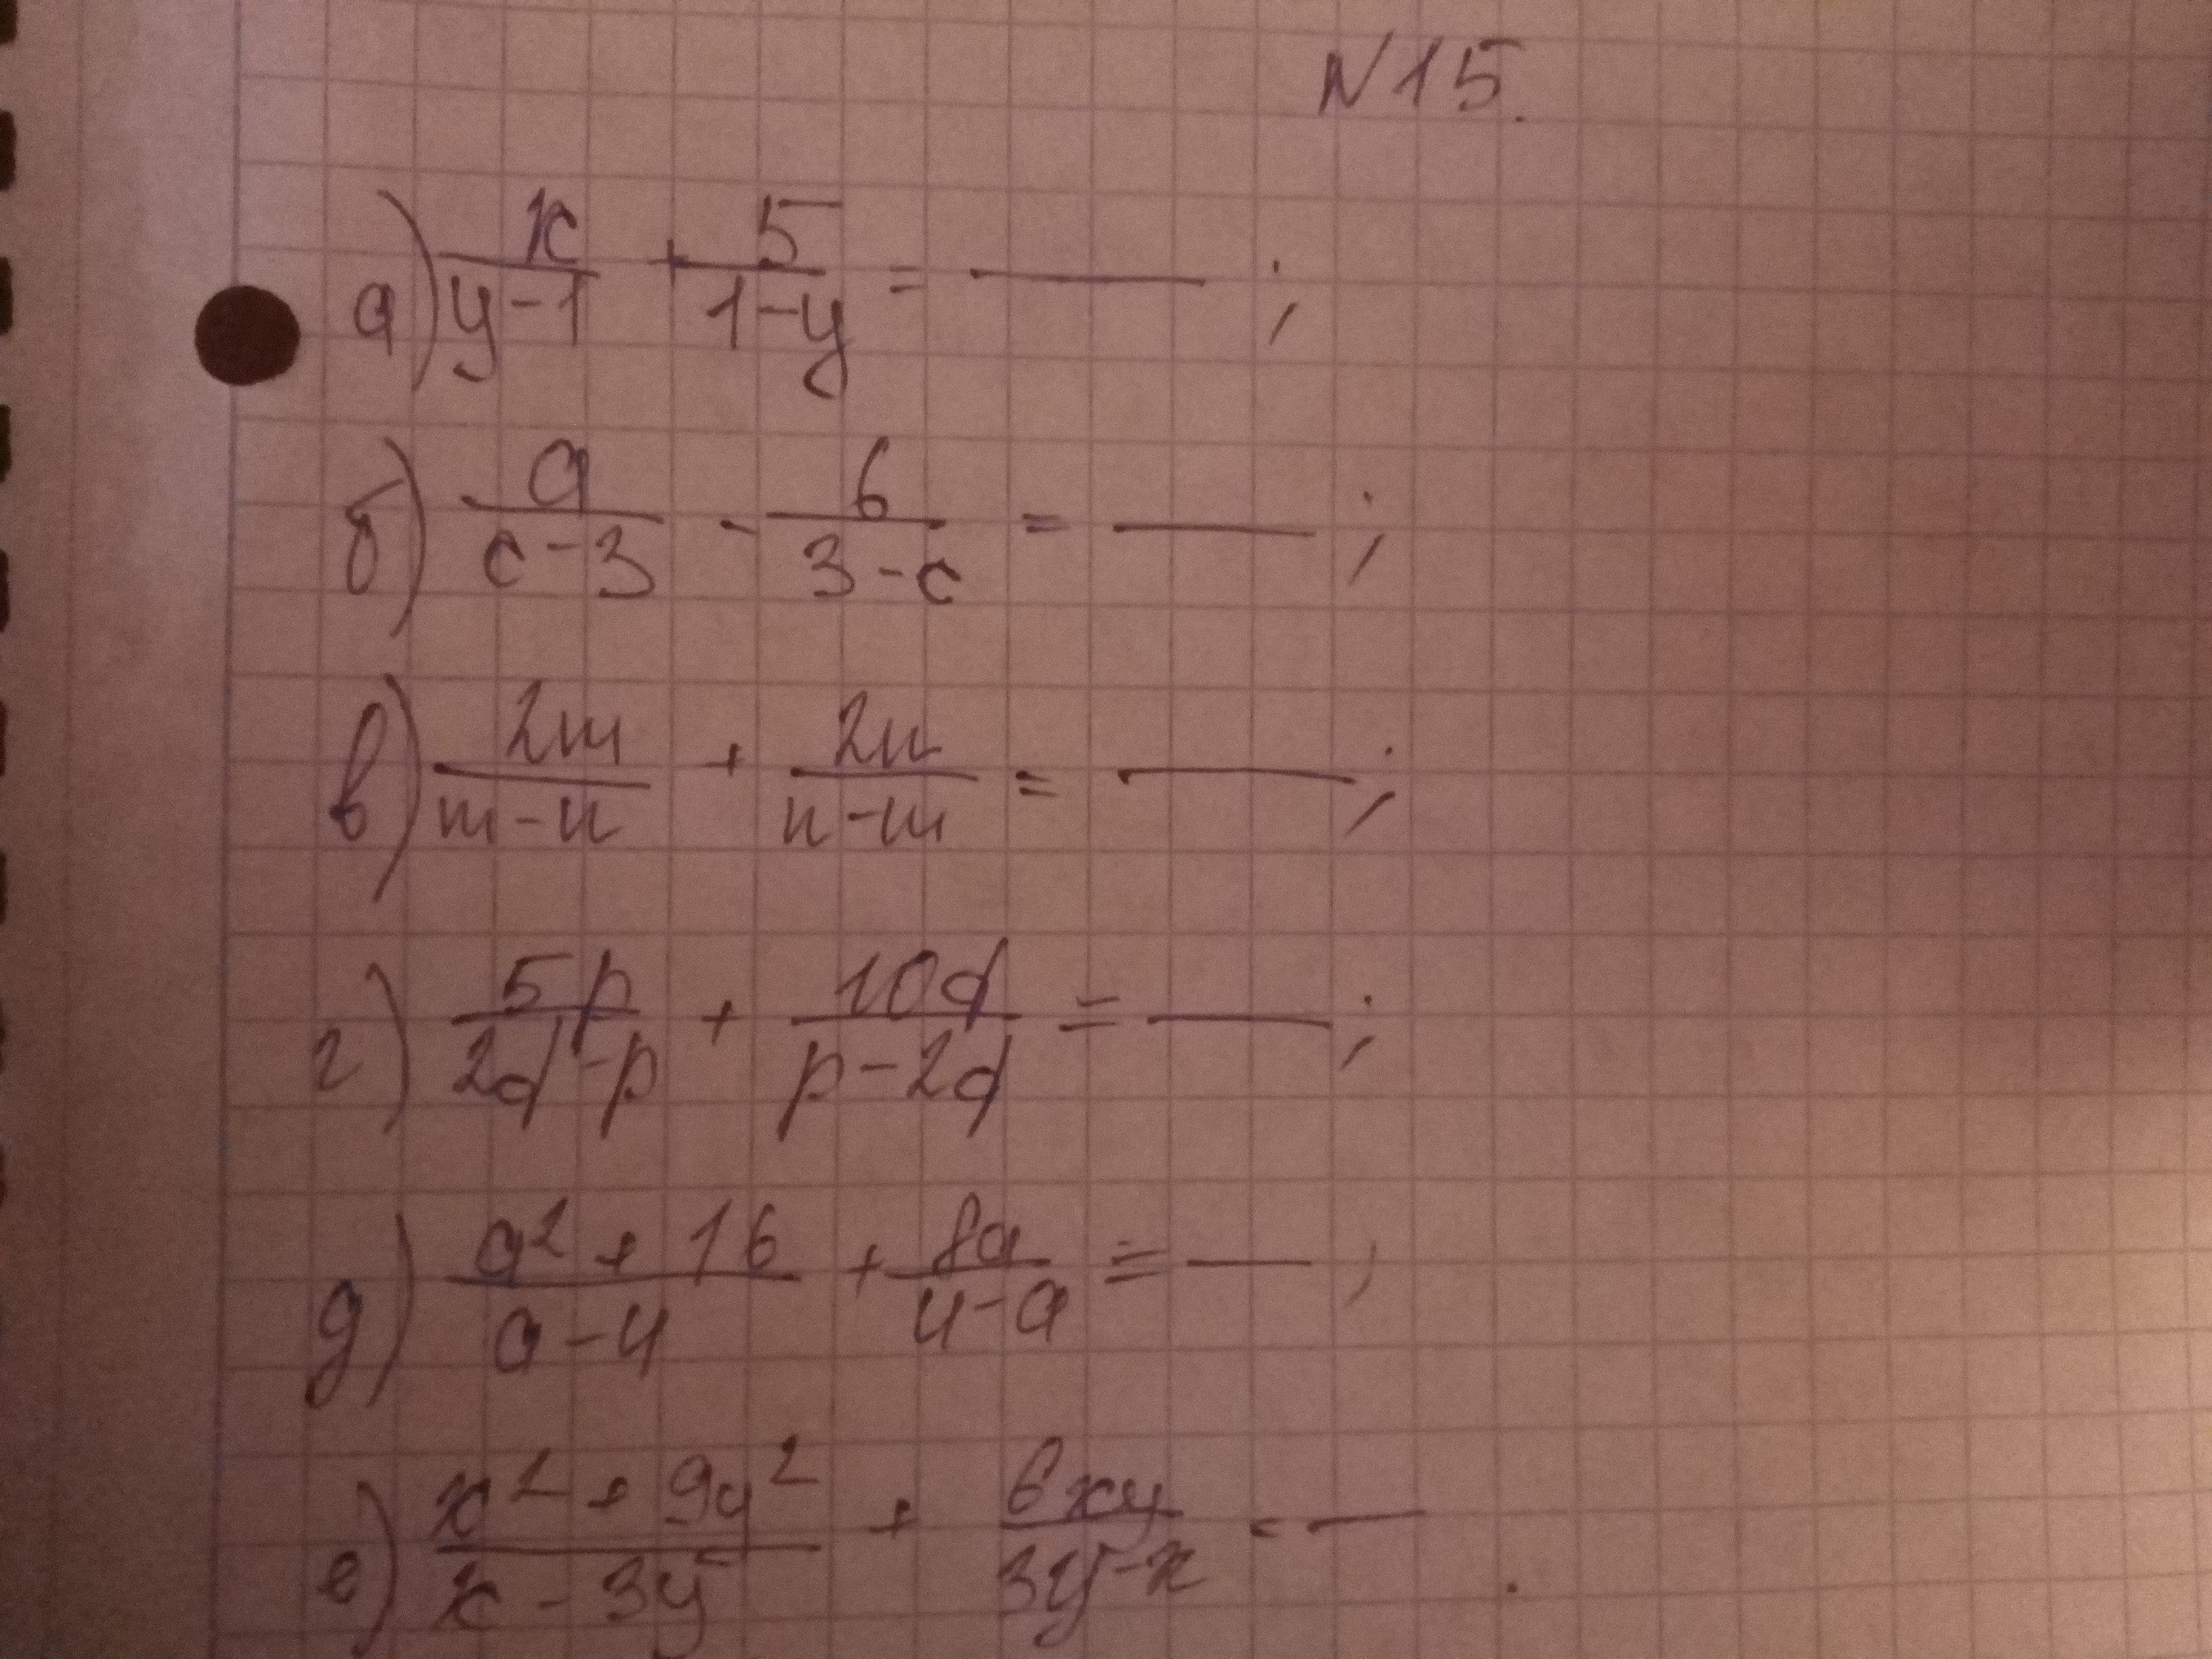 N15.
а) x/(y-1) + 5/(1-y) = ——— ;
б) a/(c-3) - 6/(3-c) = ——— ;
в) 2m/(m-n) + 2n/(n-m) = ——— ;
г) 5p/(2d-p) + 10d/(p-2d) = ——— ;
д) (a²+16)/(a-4) + 8a/(4-a) = — ,
е) (x²+9y²)/(x-3y) + 6xy/(3y-x) = — .